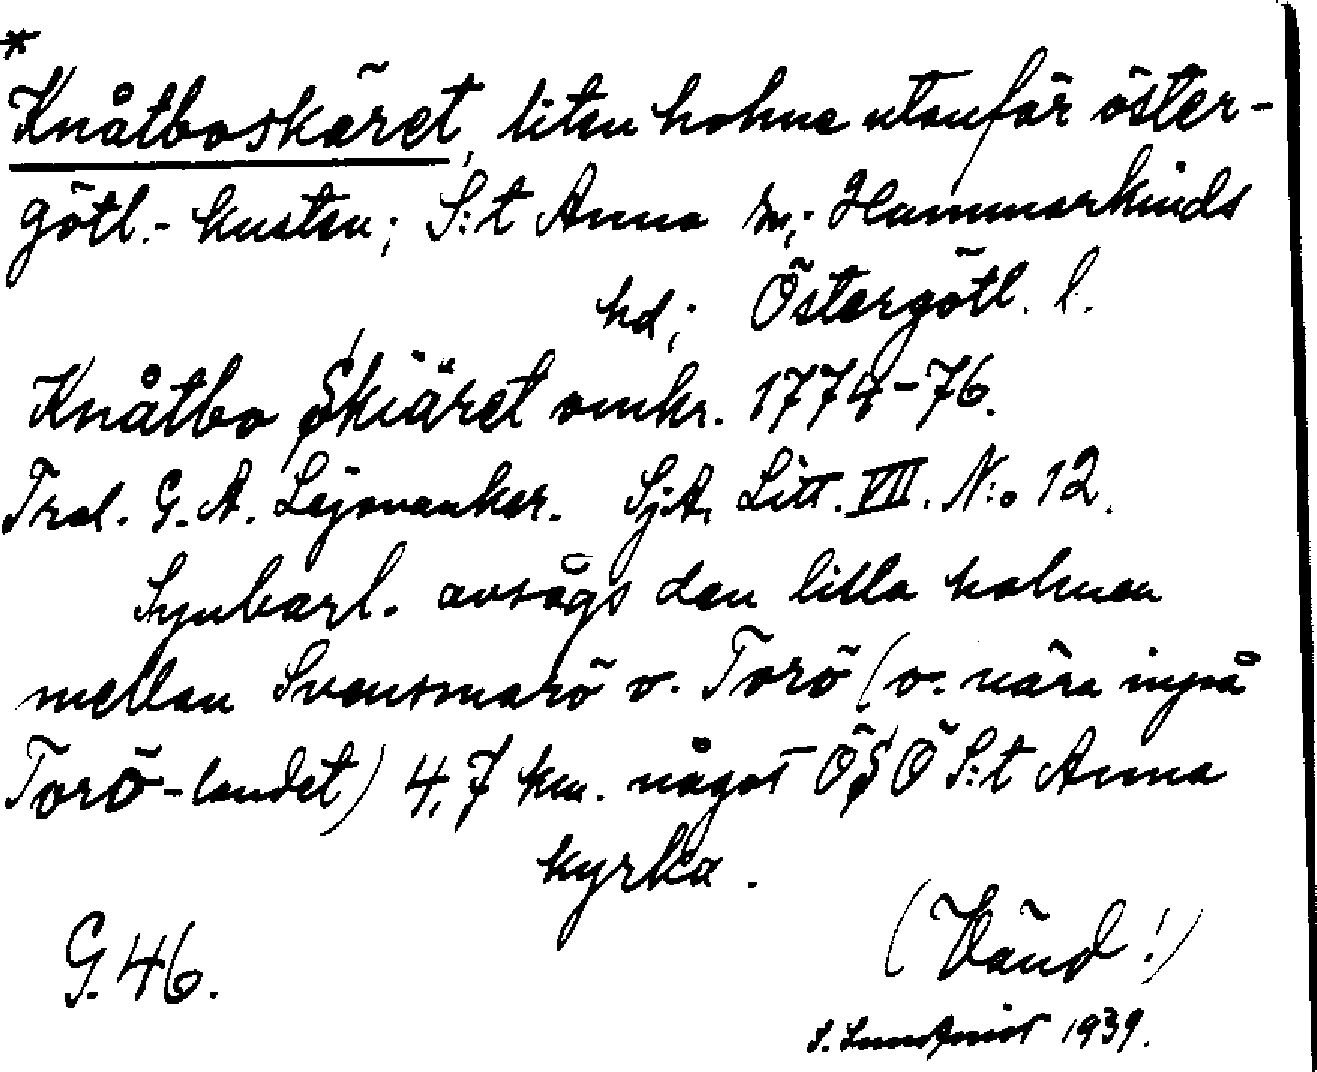 *
Knåtboskäret, liten holme utanför öster-
götl.- kusten; S:t Anna sn; Hammarkinds
hd; Östergötl. l.
Knåtbo Skiäret omkr. 1774-76.
G. A. Sj.A. Litt. VIII. N:o 12.
Synbarl. avsågs den lilla holmen
mellan Svensmarö o. Torö (o. nära inpå
Torö-landet) 4,7 km. något ÖSÖ S:t Anna
kyrka.
(Vänd!)
G. 46.
S. Sundqvist 1939.